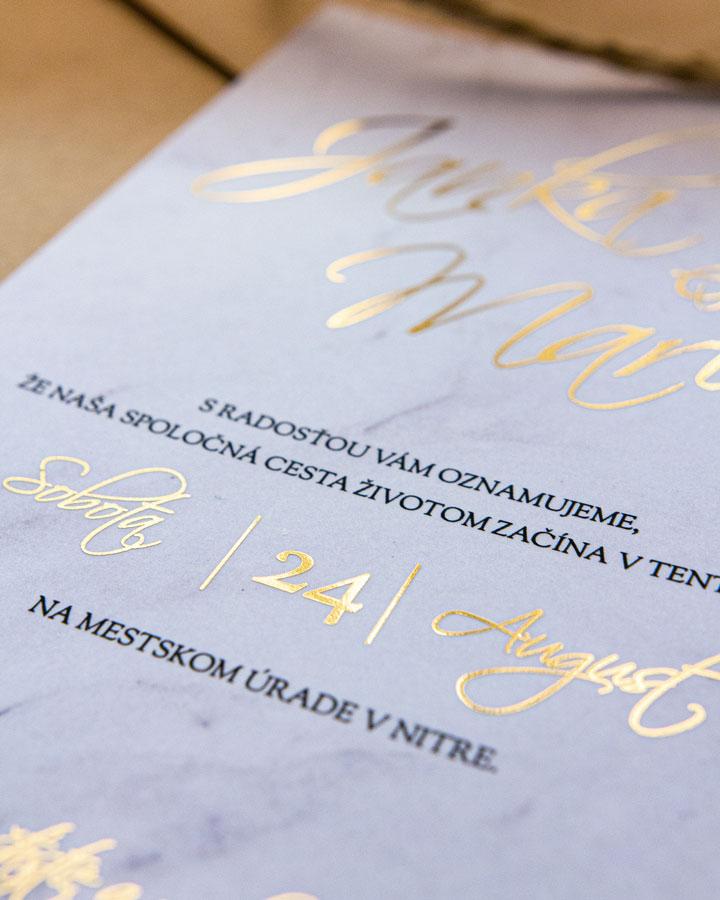 Janka &
S RADOSŤOU VÁM OZNAMUJEME,
ŽE NAŠA SPOLOČNÁ CESTA ŽIVOTOM ZAČÍNA V
Sobota | 24 | August
NA MESTSKOM ÚRADE V NITRE.